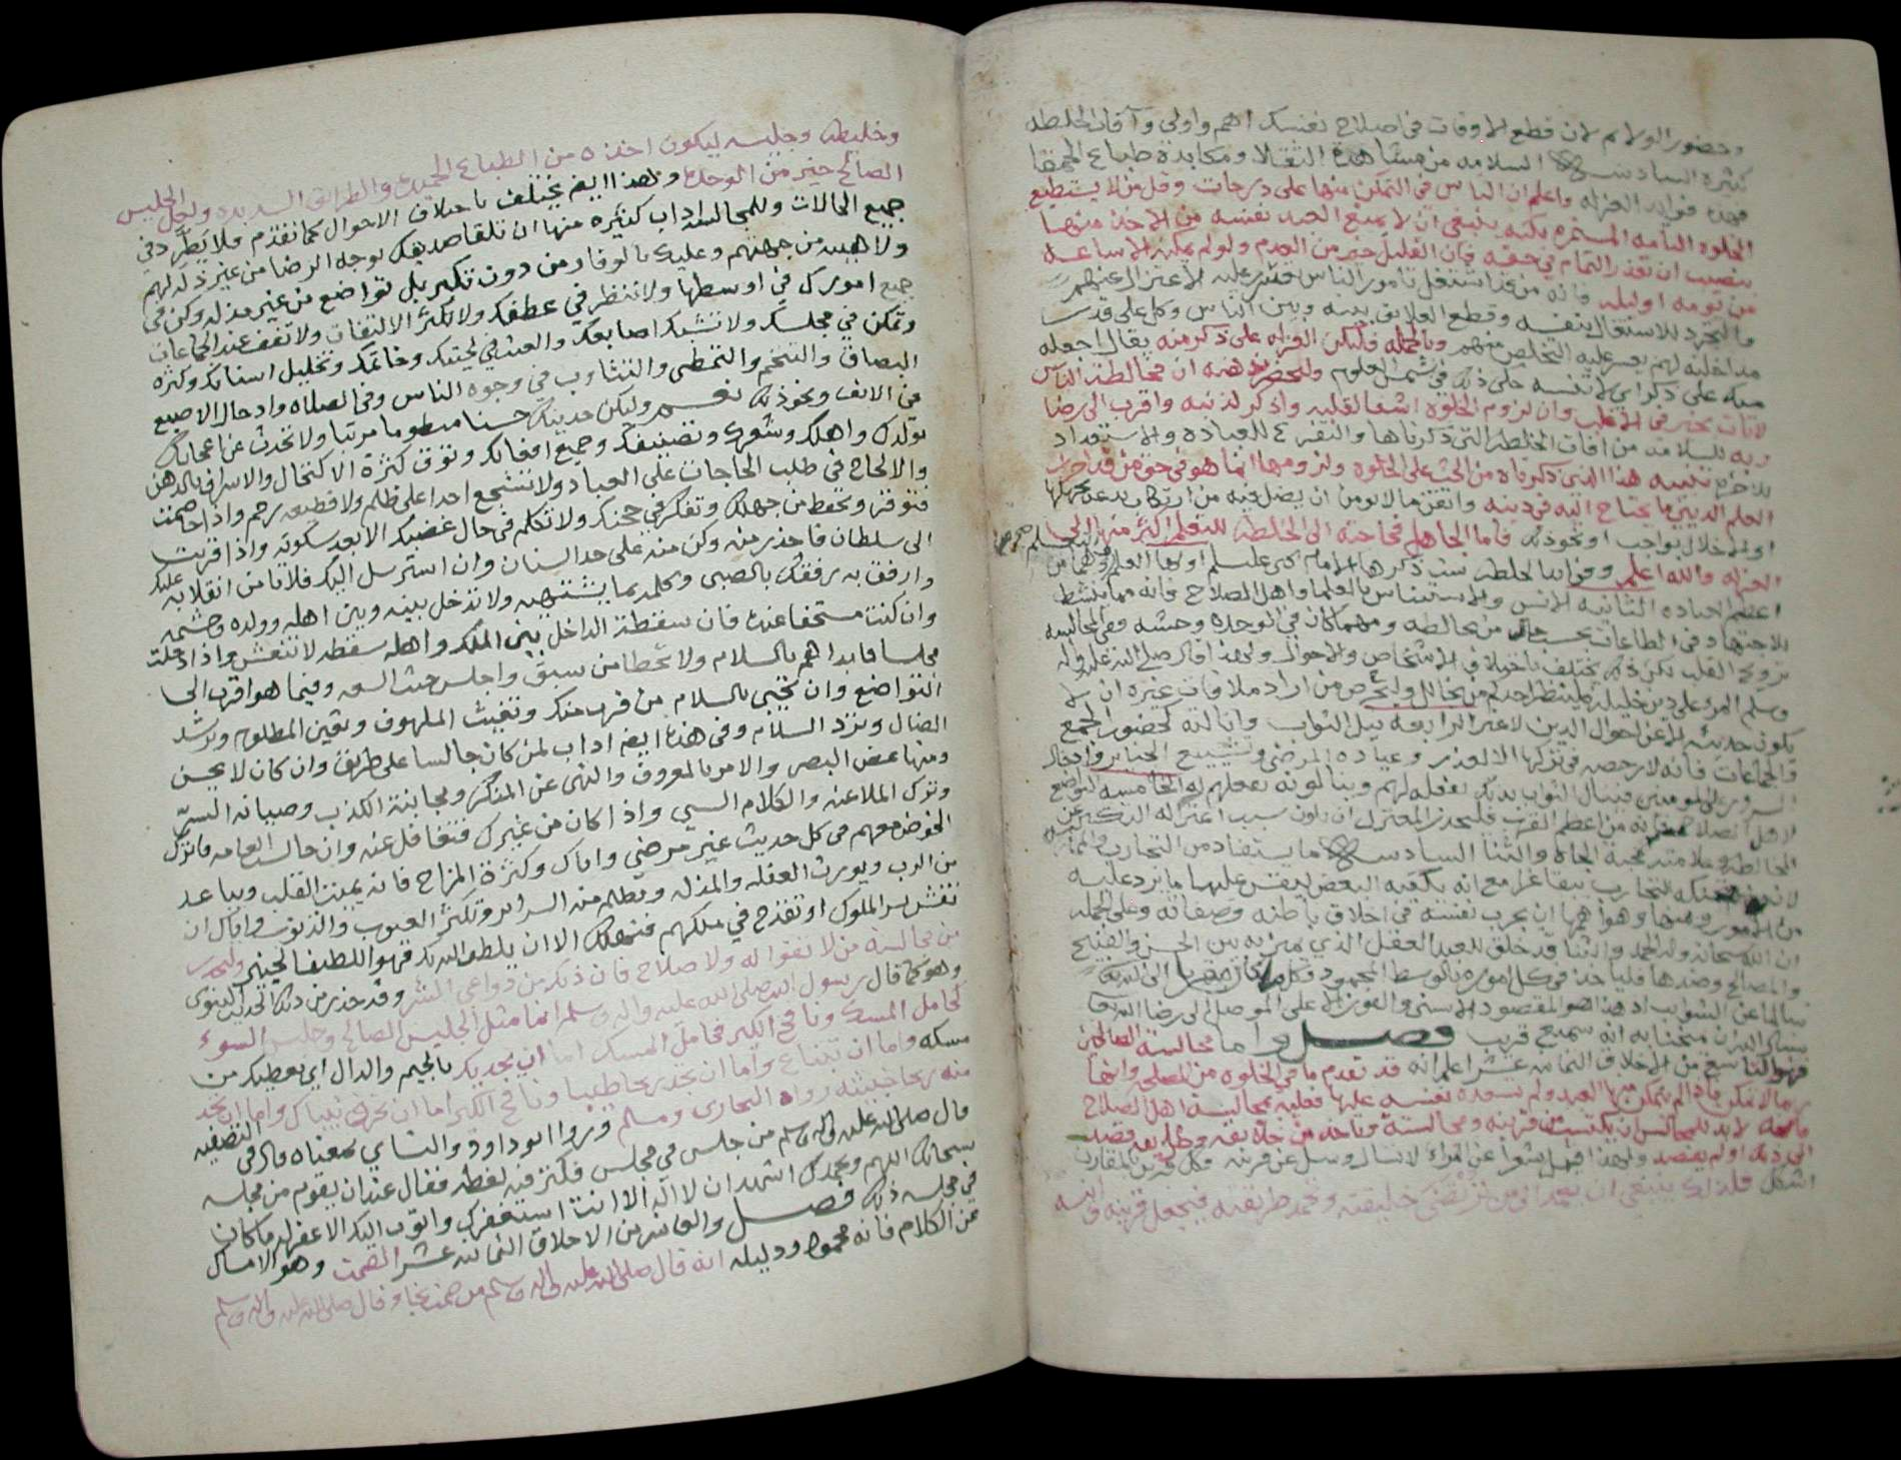 وحضور الولايم لان قطع الاوقات في اصلاح نفسك اهم واولى وآفات الخلطه
كثيره السادسه السلامه من مشاهدة الثقلا ومكابدة طباع الحمقا
فهذه فوايد العزله واعلم ان الناس في التمكن منها على درجات وقل من لا يستطيع
الخلوه التامه المستمره بكنه ينبغي ان لا يمنع العبد نفسه من الاخذ منها
بنصيب ان تعذر التمام في حقه فان القليل خير من العدم ولو لم يمكنه الا ساعه
من يومه او ليله فانه من قد اشتغل بامور الناس فتعذر عليه الاعتزال عنهم
والتجرد للاشتغال بنفسه وقطع العلايق بينه وبين الناس وكل على قدر
مداخلته لهم يعسر عليه التخلص منهم وبالجمله فلتكن العزله على ذكر منه يقال اجعله
منك على ذكر اي لا تنسه حكى ذلك في شمس العلوم وليحضر ذهنه ان مخالطة الناس
لافات تحيز في الاغلب وان لزوم الخلوه اشفا لقلبه واذكر لذنبه واقرب الى رضا
ربه للسلامه من افات الخلطه التي ذكرناها والتفرغ للعباده والاستعداد
للاخره تنبيه هذا الذي ذكرناه من الحث على الخلوه ولزومها انما هو في حق من قد احرز
العلم الديني ما يحتاج اليه في دينه واتقن ما لا يؤمن ان يضل فيه من ارتكاب بدعه يجهلها
او لاخلال بواجب او نحو ذلك فاما الجاهل فحاجته الى الخلطه للتعلم اكثر منها الى
العزله والله اعلم وفوايد الخلطه ست ذكرها الامام ى عليلم اولها العلم وهما من
اعظم العباده الثانيه الانس والاستيناس بالعلما واهل الصلاح فانه مما ينشط
للاجتهاد في الطاعات بحسب حال من يخالطه ومهما كان في الوحده وحشه ففي المجالسه
ترويح القلب لكن ذلك يختلف باختلاف الاشخاص والاحوال ولهذا قال صلى الله عليه واله
وسلم المرء على دين خليله فلينظر احدكم من يخالل وليحرص من اراد ملاقات غيره ان لا
يكون حديثه الا عن احوال الدين لا غير الرابعه نيل الثواب وانالته كحضور الجمع
والجماعات فانه لا رخصه في تركها الا لعذر وعيادة المرضى وتشييع الجنايز وادخال
السرور على المومنين فينال الثواب بذلك بفعله لهم وينالونه بفعلهم له الخامسه التواضع
لاهل الصلاح فانه من اعظم القرب فليحذر المعتزل ان يكون سبب اعتزاله التكبر عن
المخالطه وعلامته محبة الجاه والثنا السادسه ما يستفاد من التجارب
من الامور ومنها وهو اهمها ان يجرب نفسه في اخلاق باطنه وصفاته وعلى الجمله
ان الله سبحانه وله الحمد والثنا قد خلق للعبد العقل الذي يميز به بين الحسن والقبيح
والمصالح وضدها فلياخذ في كل اموره بالوسط المحمود
سالما عن الشوايب اذ هذا هو المقصود الاسنى والفوز الاعلى الموصل الى رضا الله
نسال الله ان يمنحنا به انه سميع قريب فصل واما مجالسة الصالحين
فهو التاسع من الاخلاق الثمانيه عشر اعلم انه قد تقدم ما في الخلوه من المصالح وانها
ربما لا تمكن فاذا لم يتمكن منها العبد ولم تسعده نفسه عليها فعليه بمجالسة اهل الصلاح
فانه لا بد للمجالس ان يكتسب من قرينه ومجالسه وياخذ من خلايقه وطرايقه قصد
الى ذلك او لم يقصد ولهذا قيل شعرا عن المرء لا تسال وسل عن قرينه فكل قرين بالمقارن
اشكل فلذلك ينبغي ان يعمد الى من ترتضى خليقته وتحمد طريقته فيجعل قرينه وانيسه
وخليطه وجليسه ليكون اخذه من الطباع الحميده والطرايق السديده وليحل الجليس
الصالح خير من الوحده وهذا ايضا يختلف باختلاف الاحوال كما تقدم فلا يطرد في
جميع الحالات وللمجالسه اداب كثيره منها ان تلقا صديقك بوجه الرضا من غير ذله لهم
ولا هيبه من جهتهم وعليك بالوقار من دون تكبر بل تواضع من غير مذله وكن في
جميع امورك في اوسطها ولا تنظر في عطفك ولا تكثر الالتفات ولا تقف عند الجماعات
وتمكن في مجلسك ولا تشبك اصابعك والعبث في لحيتك وخاتمك وتخليل اسنانك وكثرة
البصاق والتنخم والتمطي والتثاوب في وجوه الناس وفي الصلاه وادخال الاصبع
في الانف ونحو ذلك نعم وليكن حديثك حسنا منظوما مرتبا ولا تحدث عن اعجابك
بولدك واهلك وشعرك وتصنيفك وجميع افعالك وتوق كثرة الاكتحال والاسراف بالدهن
والالحاح في طلب الحاجات على العباد ولا تشجع احدا على ظلم ولا قطيعه رحم واذا خاصمت
فتوقر وتحفظ من جهلك وتفكر في حجتك ولا تكلم في حال غضبك الا بعد سكونه واذا قربت
الى سلطان فاحذر منه وكن منه على حد السنان وان استرسل اليك فلا تامن انقلابه عليك
وارفق به رفقك بالصبي وكلمه بما يشتهيه ولا تدخل بينه وبين اهله وولده وحشمه
وان كنت مستحقا عنده فان سقطة الداخل بين الملك واهله سقطه لا تنتعش واذا دخلت
مجلسا فابداهم بالسلام ولا تخطا من سبق واجلس حيث السعه وفيما هو اقرب الى
التواضع وان تحيي بالسلام من قرب منك وتغيث الملهوف وتعين المظلوم وترشد
الضال وترد السلام وفي هذا ايضا اداب لمن كان جالسا على طريق وان كان لا يحسن
ومنها غض البصر والامر بالمعروف والنهي عن المنكر ومجانبة الكذب وصيانه السر
وترك الملاعنه والكلام السيي واذا كان من غيرك فتغافل عنه وان جالست العامه فاترك
الخوض معهم في كل حديث غير مرضي واياك وكثرة المزاح فانه يميت القلب ويباعد
من الرب ويورث الغفله والمذله وتظلم منه السراير وتكثر العيوب والذنوب واياك ان
تفشى سر الملوك او تقدح في ملكهم فتهلك الا ان يلطف الله بك فهو اللطيف الخبير وليحذر
من مجالسة من لا تقوا له ولا صلاح فان ذلك من دواعي الشر وقد حذر من ذلك الحديث النبوي
وهو كما قال رسول الله صلى الله عليه واله وسلم انما مثل الجليس الصالح وجليس السوء
كحامل المسك ونافخ الكير فحامل المسك اما ان يجديك بالجيم والدال اي يعطيك من
مسكه واما ان تبتاع واما ان تجد ريحا طيبا ونافخ الكير اما ان يحرق ثيابك واما ان تجد
منه ريحا خبيثه رواه البخاري ومسلم وروا ابو داود والنساي معناه وفي التصفيه
قال صلى الله عليه واله وسلم من جلس في مجلس فكثر فيه لغطه فقال عند ان يقوم من مجلسه
سبحانك اللهم وبحمدك اشهد ان لا اله الا انت استغفرك واتوب اليك الا غفر له ما كان
في مجلسه ذلك فصل والعاشر من الاخلاق الثمانيه عشر الصمت وهو الامساك
عن الكلام فانه محمود ودليله انه قال صلى الله عليه واله وسلم من صمت نجا وقال صلى الله عليه واله وسلم